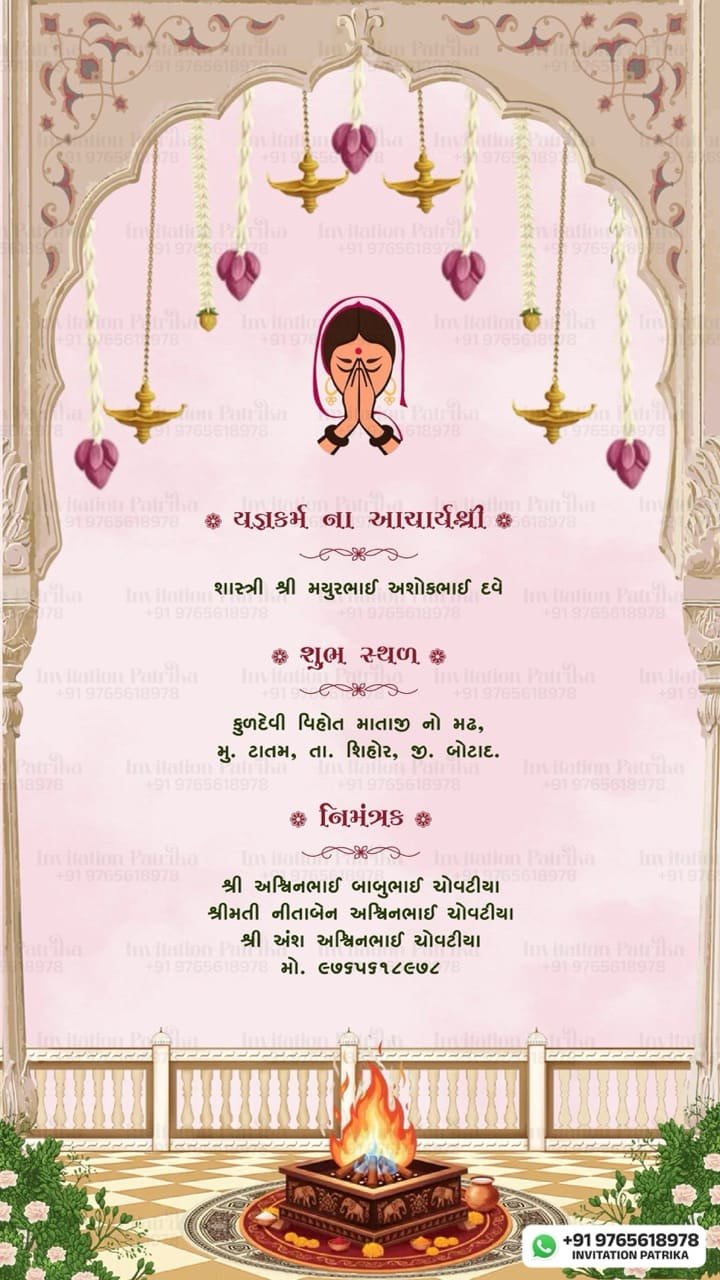 યજ્ઞકર્મ ના આચાર્યશ્રી
શાસ્ત્રી શ્રી મયુરભાઈ અશોકભાઈ દવે
શુભ સ્થળ
કુળદેવી વિહોત માતાજી નો મઢ,
મુ. ટાતમ, તા. શિહોર, જી. બોટાદ.
નિમંત્રક
શ્રી અશ્વિનભાઈ બાબુભાઈ ચોવટીયા
શ્રીમતી નીતાબેન અશ્વિનભાઈ ચોવટીયા
શ્રી અંશ અશ્વિનભાઈ ચોવટીયા
મો. ૯૭૬૫૬૧૮૯૭૮
+91 9765618978
INVITATION PATRIKA